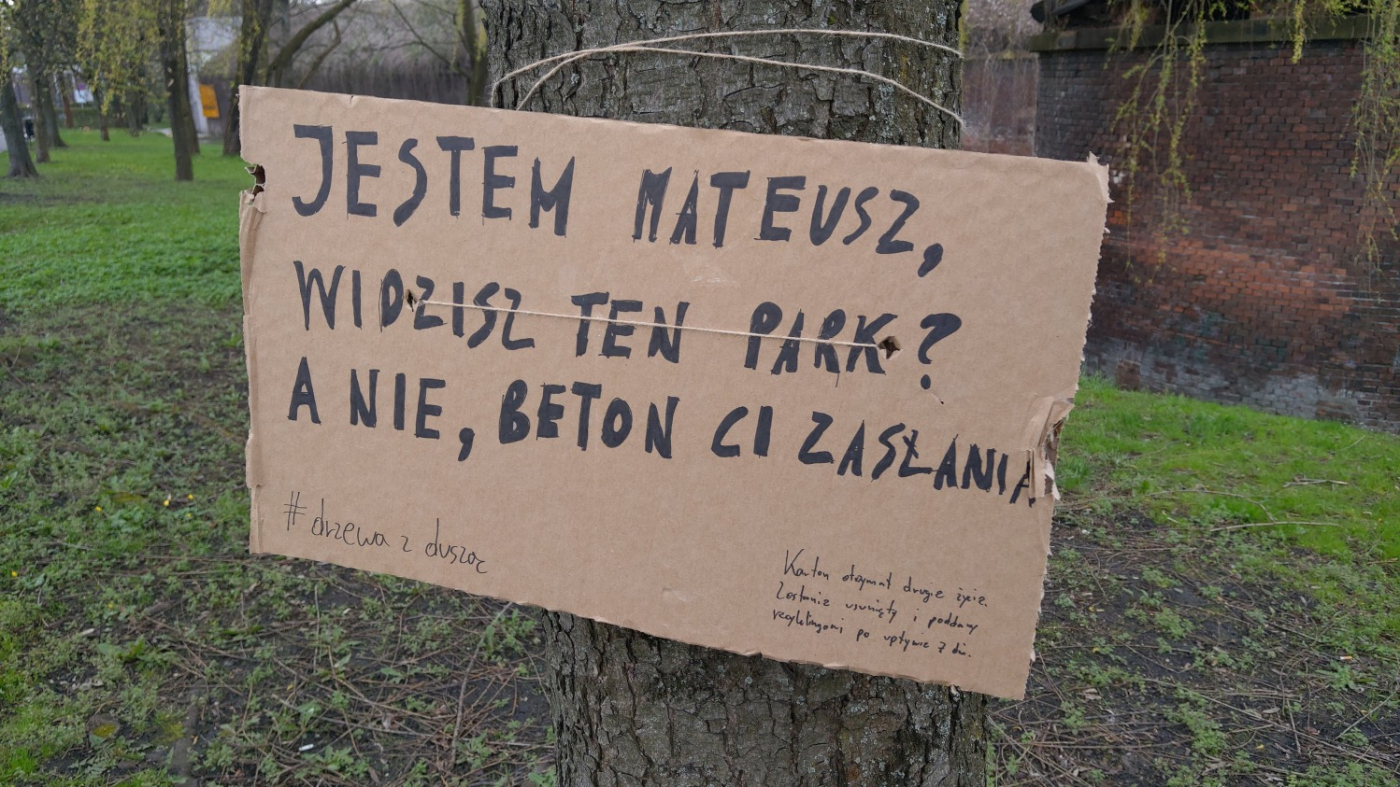 JESTEM MATEUSZ,
WIDZISZ TEN PARK?
A NIE, BETON CI ZASŁANIA
#drzewa z duszą
Karton otrzymał drugie życie.
Zostanie usunięty i poddany
recyklingowi po upływie 7 dni.